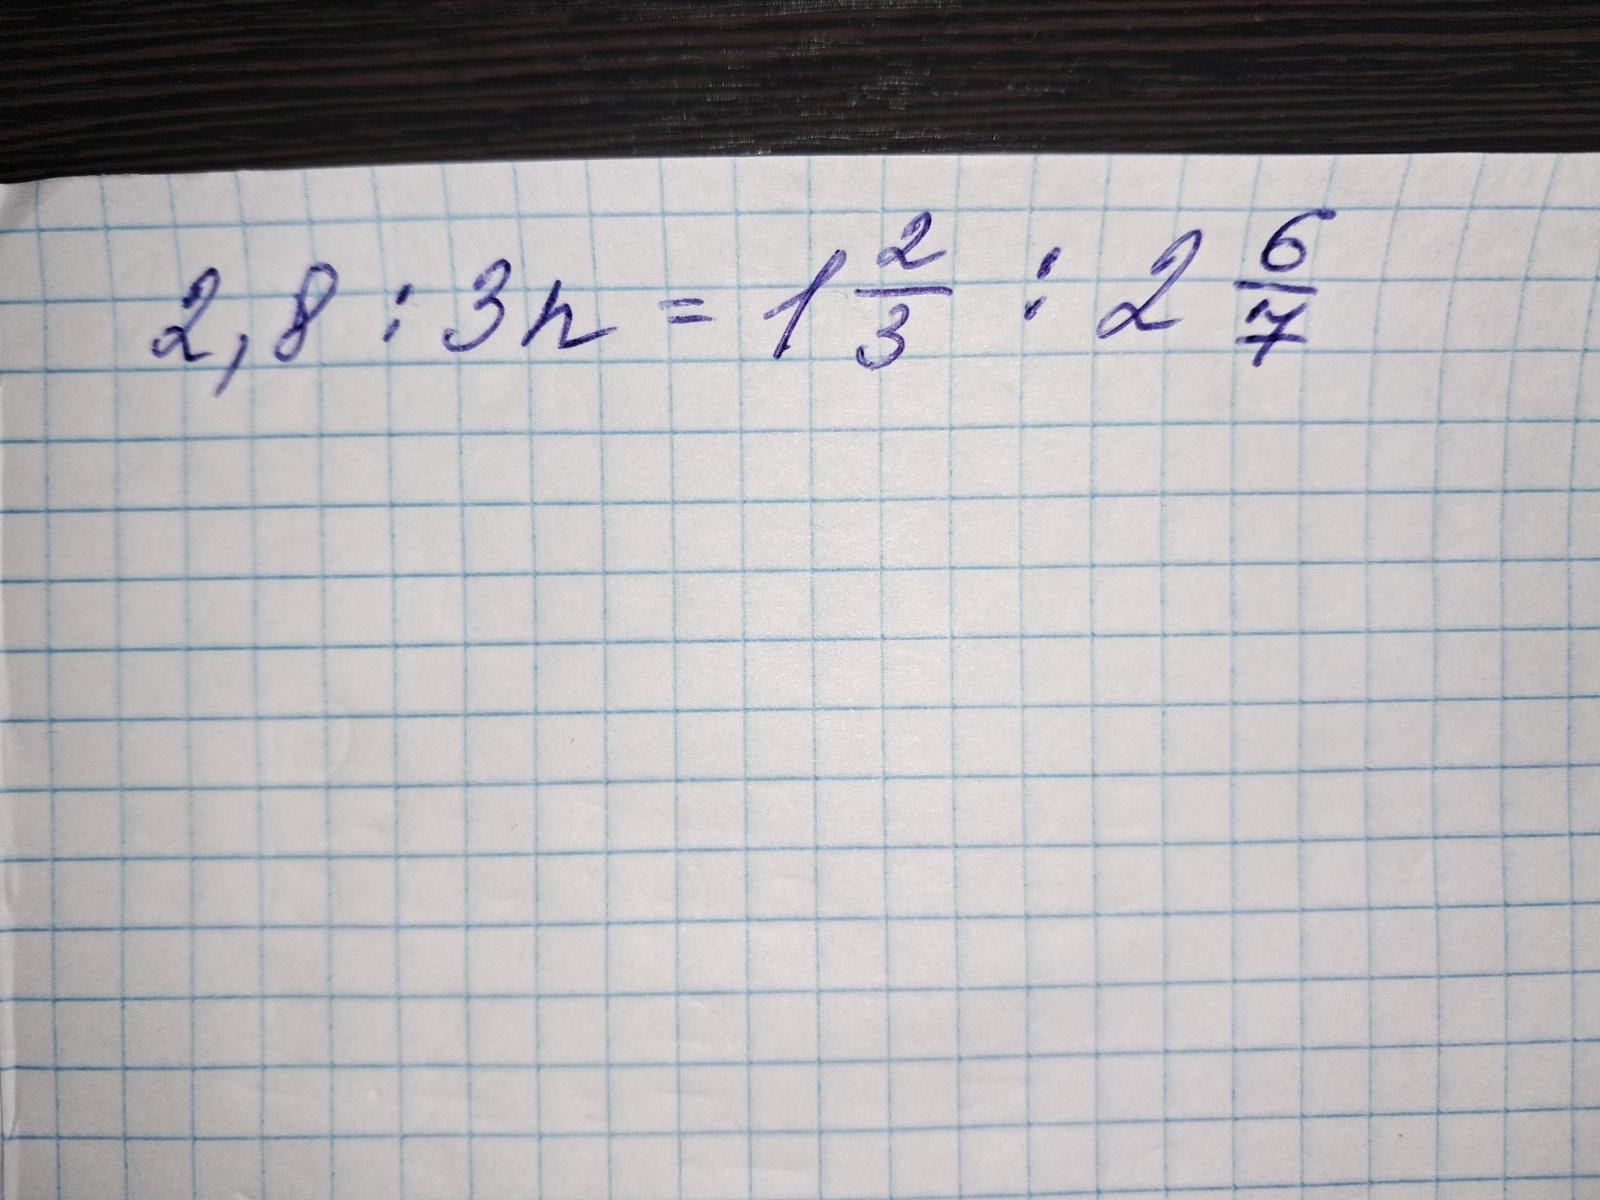 2,8 : 3n = 1 2/3 : 2 6/7